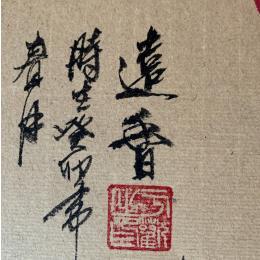 遠香
時在癸卯年
春月